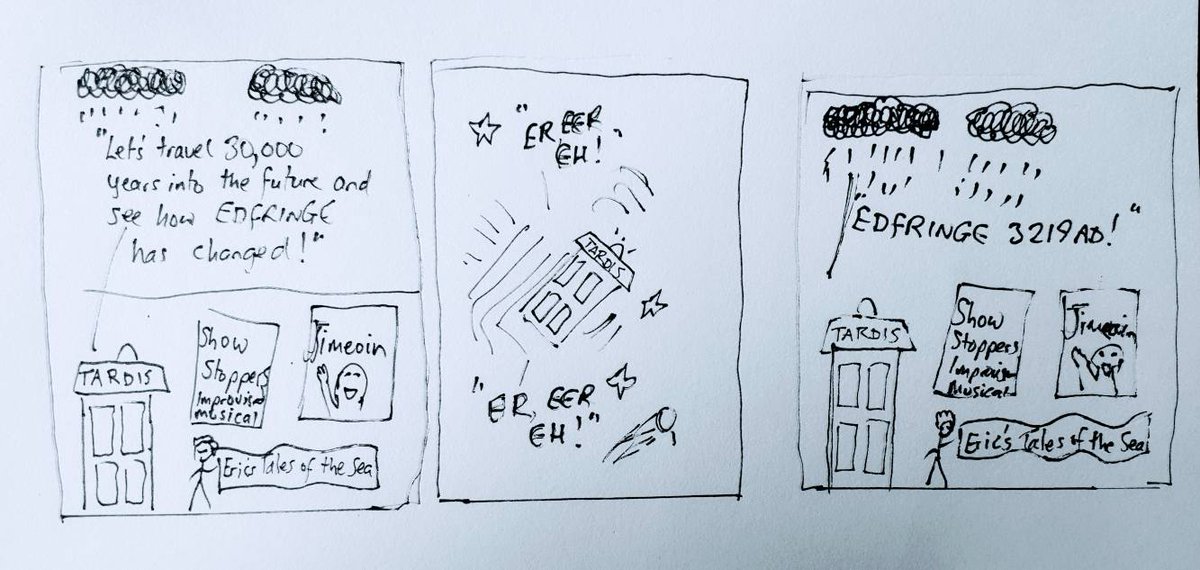 "Let's travel 30,000
years into the future and
see how EDFRINGE
has changed!"
TARDIS
Show
Stoppers
Improvised
musical
Jimeoin
Eric's Tales of the Sea
"ER, EER
EH!"
TARDIS
"ER, EER
EH!"
"EDFRINGE 3219AD!"
TARDIS
Show
Stoppers
Improvised
Musical
Jimeoin
Eric's Tales of the Sea